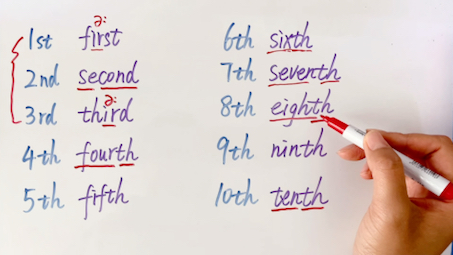 1st first
ə:
2nd second
3rd third
ə:
4th fourth
5th fifth
6th sixth
7th seventh
8th eighth
9th ninth
10th tenth